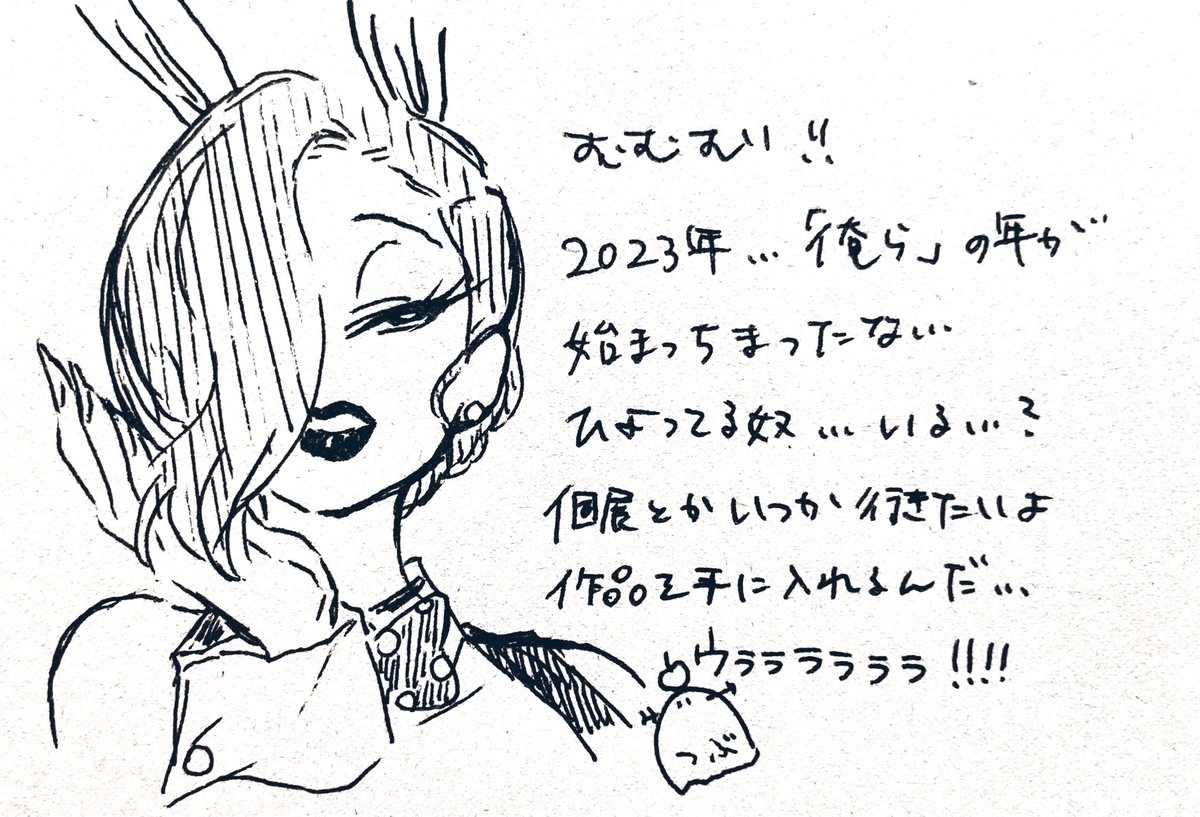 むむむり!!
2023年…「俺ら」の年が…
始まっちまったな…
ひよってる奴…いる…?
個展とかいつか行きたいよ
作品を手に入れるんだ…
ウララララララ!!!!
つぶ